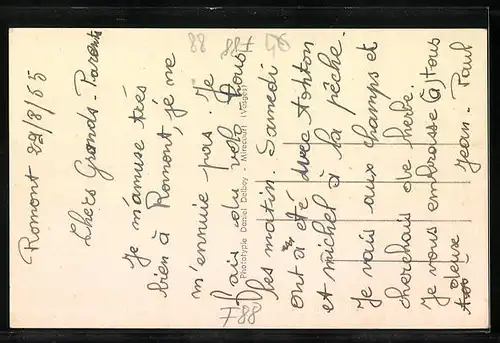 Romont 29/8/55
Chers Grands-Parents
Je m'amuse très
bien à Romont, je ne
m'ennuie pas. Je
fais du vélo tous
les matin. Samedi
ont a été avec tonton
et michel à la pêche.
Je vais aux champs et
cherchais de herbe.
Je vous embrasse (a) tous
deux Jean-Paul
Phototypie Daniel Delboy - Mirecourt (Vosges)
88 88F 46
F88